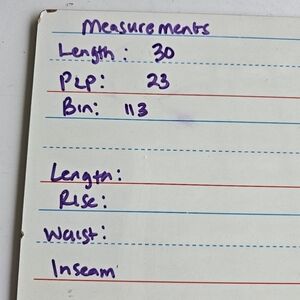 Measurements
Length: 30
PLP: 23
Bin: 113
Length:
Rise:
Waist:
Inseam